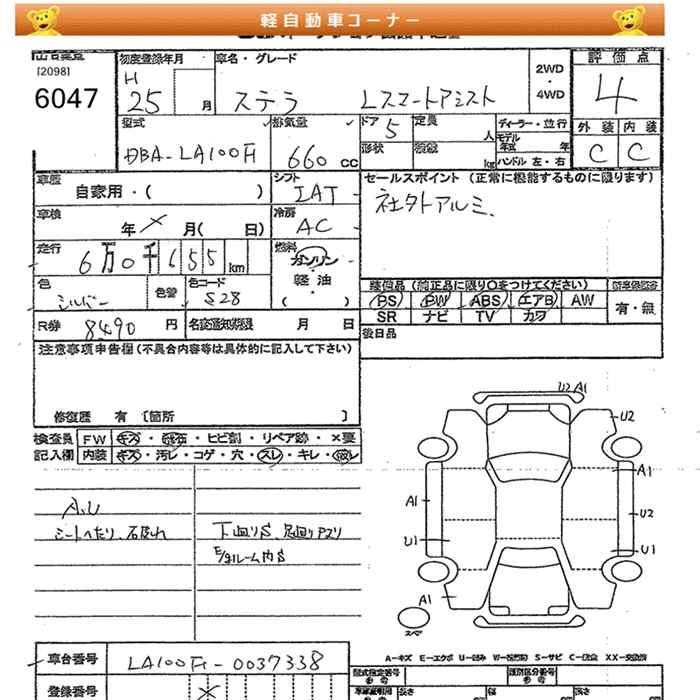 軽自動車コーナー
[2098]
6047
初度登録年月
H
25
月
車名・グレード
ステラ Lスマートアシスト
2WD
・
4WD
評価点
4
外装 内装
C C
型式
DBA-LA100F
排気量
660 cc
ドア
5
定員
人
形状
積載
kg
ディーラー・並行
モデル
年式
年
ハンドル 左・右
車歴
自家用・( )
シフト
IAT
セールスポイント (正常に機能するものに限ります)
社外アルミ
車検
年 × 月( 日)
冷房
AC
走行
6万0千655 km
燃料
ガソリン
・
軽油
( )
色
シルバー
色替
色コード
S28
装備品(純正品に限り○をつけてください)
PS PW ABS エアB AW
SR ナビ TV カワ
有・無
R券
8490 円
名変通知期限 月 日
後日品
注意事項申告欄(不具合内容等は具体的に記入して下さい)
修復歴 有 [箇所 ]
検査員
記入欄
FW キズ・飛石・ヒビ割・リペア跡・×要
内装 キズ・汚レ・コゲ・穴・スレ・キレ
A.U
シートへたり、石はね
下回りS、足回りサビ
E/gルーム内S
U2 A1
U2
A1
A1
U2
U1
U1
A1
スペア
A-キズ E-エクボ U-凹み S-サビ XX-交換済
車台番号
LA100F-0037338
登録番号
×
型式指定番号
類別区分番号
長さ
幅
高さ